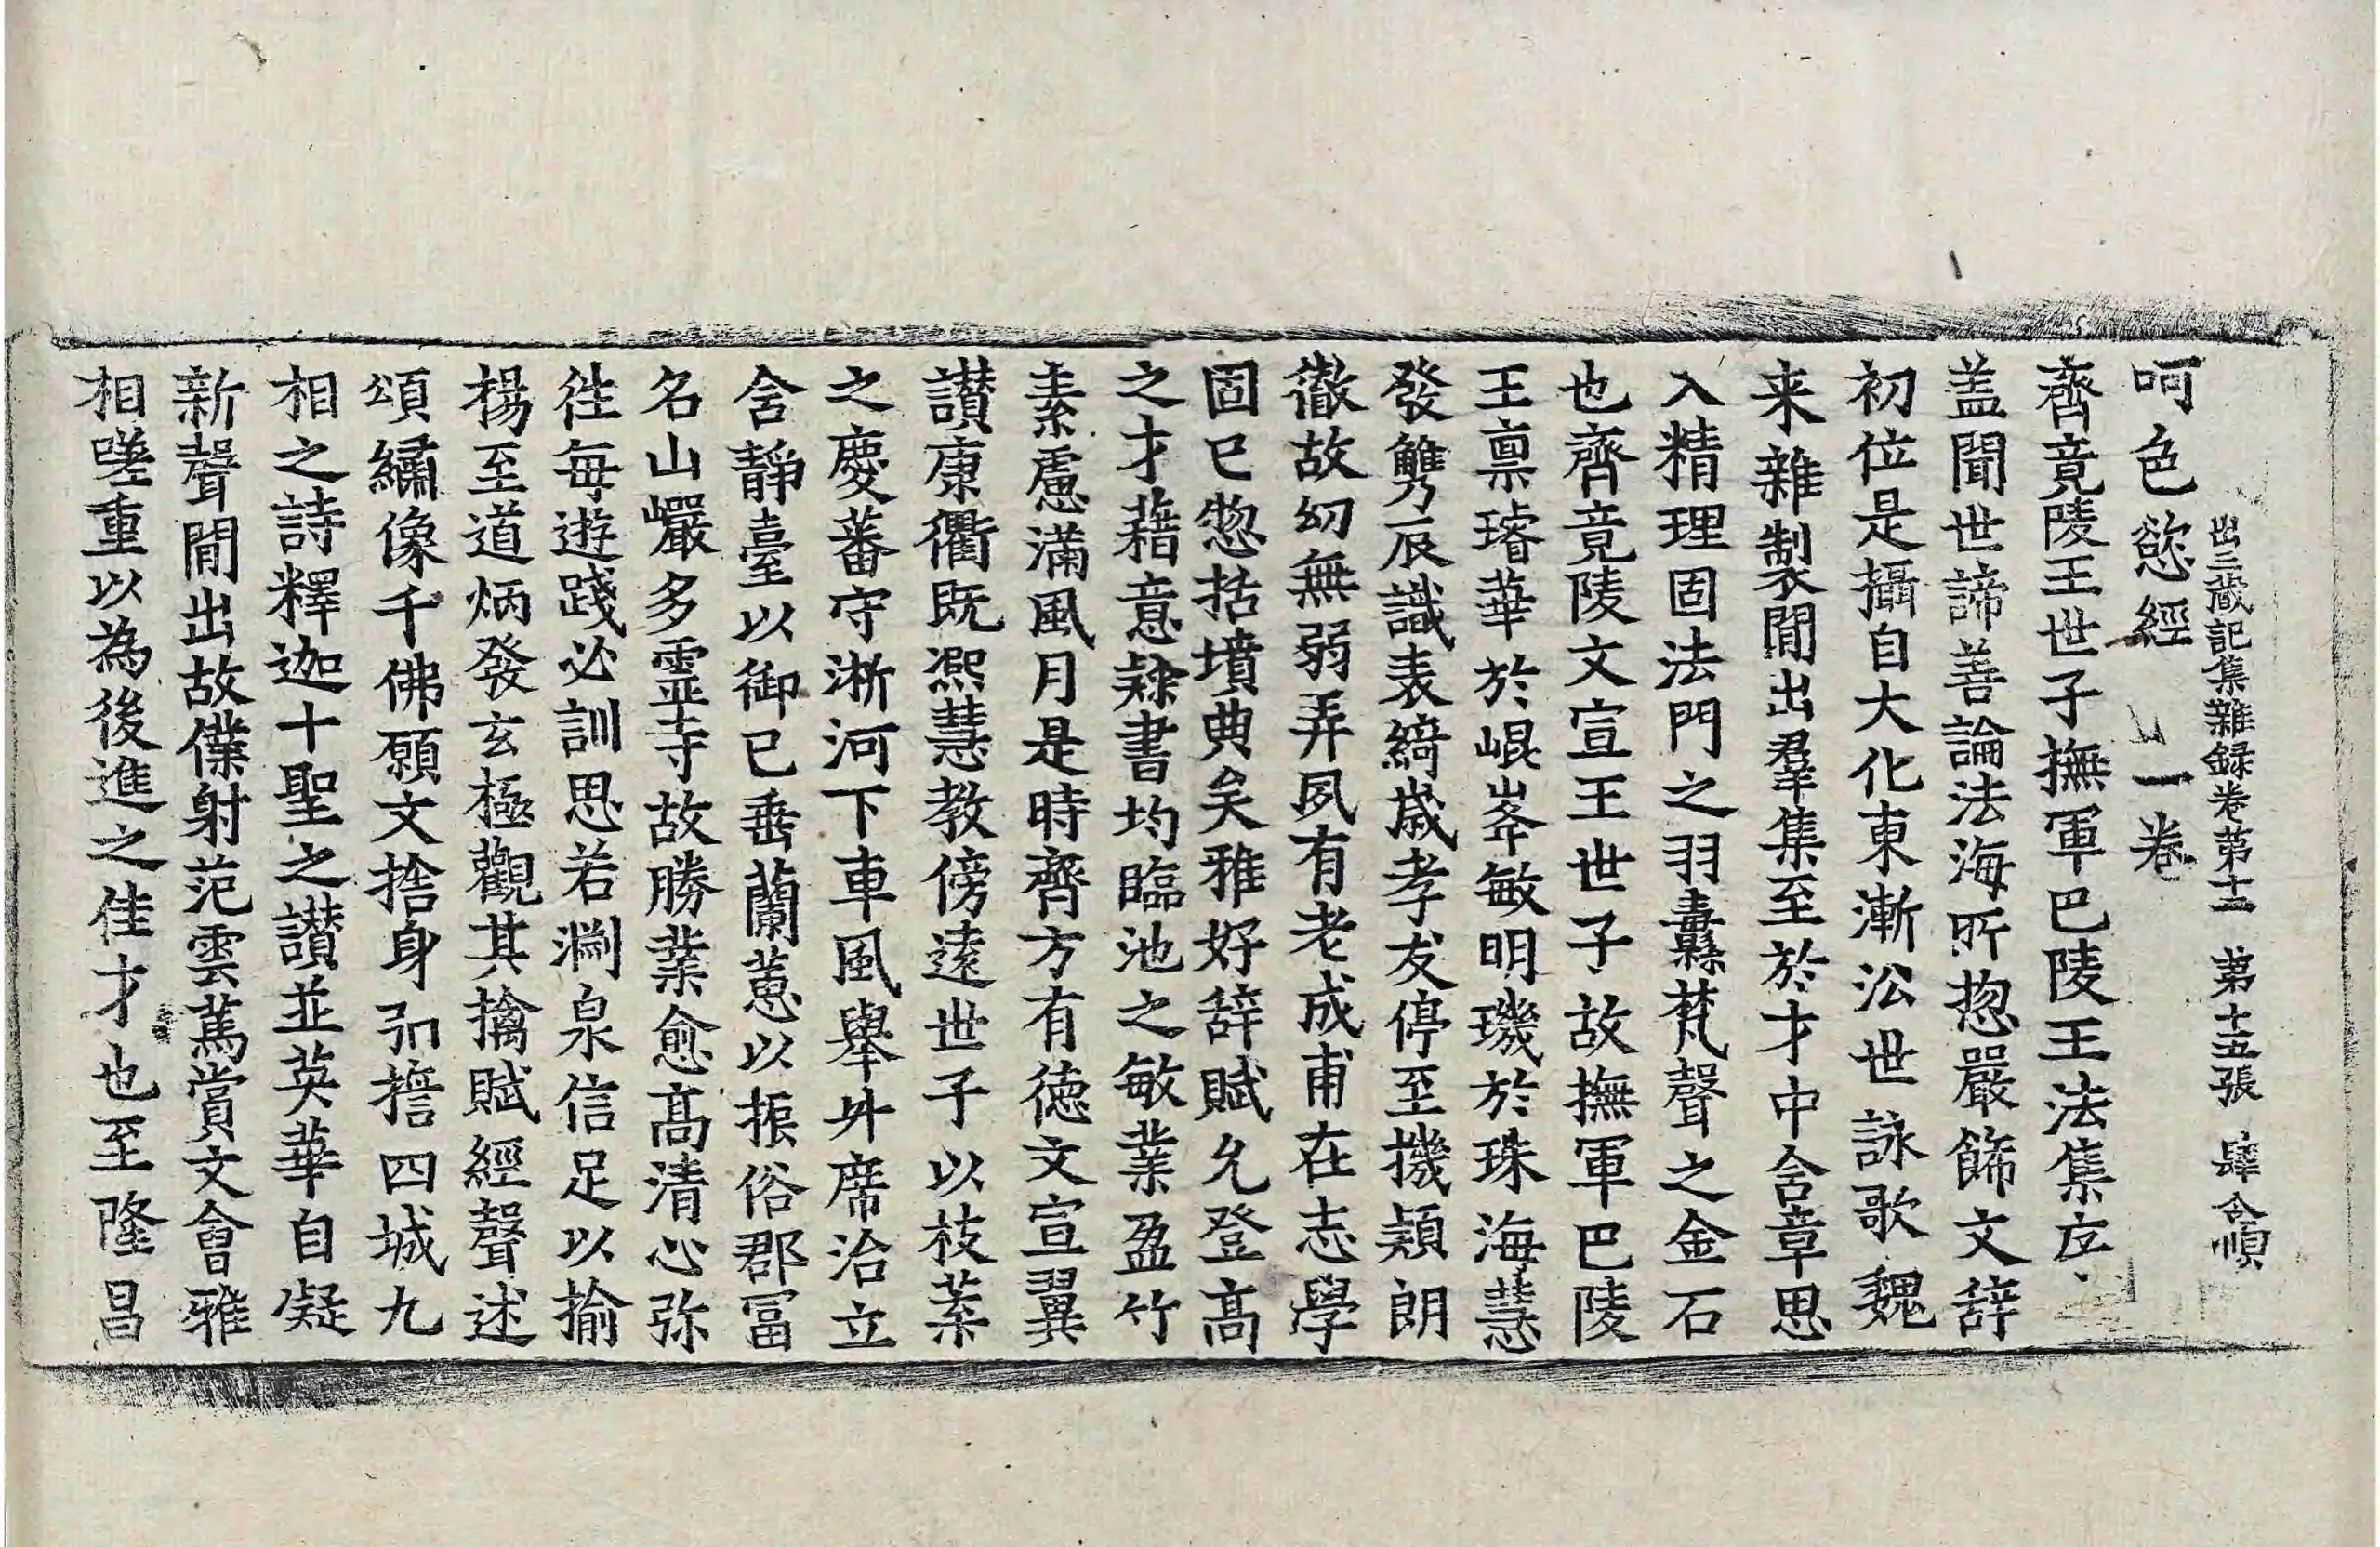 出三蔵記集雜録卷第十二　第十五張　肆　令順
呵色慾經　一卷
齊竟陵王世子撫軍巴陵王法集序
盖聞世諦善論法海所惣嚴飾文辞
初位是攝自大化東漸㳂世詠歌魏
来雜製閒出羣集至於才中含章思
入精理固法門之羽纛梵聲之金石
也齊竟陵文宣王世子故撫軍巴陵
王禀璿華於崐峯敏明璣於珠海慧
發觿辰識表綺歳孝友停至機頴朗
徹故幼無弱弄夙有老成甫在志學
固已惣括墳典矣雅好辞賦允登髙
之才藉意隸書均臨池之敏業盈竹
素慮滿風月是時齊方有德文宣翼
讃康衢既凞慧教傍遠世子以枝葉
之慶蕃守淅河下車風舉升席治立
舍靜臺以御已垂蘭蕙以振俗郡冨
名山巖多靈寺故勝業愈髙清心弥
徃每遊踐必訓思若渊泉信足以揄
楊至道炳發玄極觀其摛賦經聲述
頌繡像千佛願文捨身弘擔四城九
相之詩釋迦十聖之讃並英華自凝
新聲閒出故僕射范雲篤賞文會雅
相嗟重以為後進之佳才也至隆昌